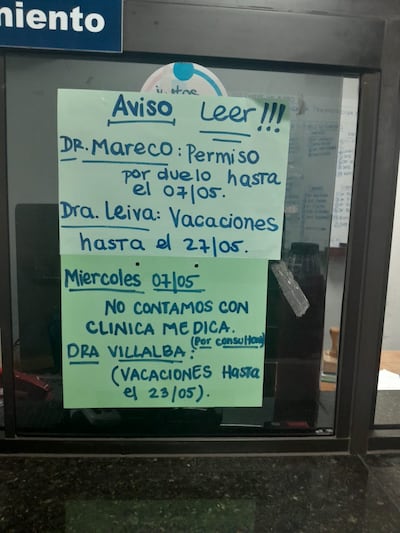 miento
juntos
Aviso Leer!!!
DR. MARECO: Permiso
por duelo hasta
el 07/05.
Dra. Leiva: Vacaciones
hasta el 27/05.
Miercoles 07/05
NO CONTAMOS CON
CLINICA MEDICA.
(Por consultorio)
DRA VILLALBA:
(VACACIONES Hasta
el 23/05).